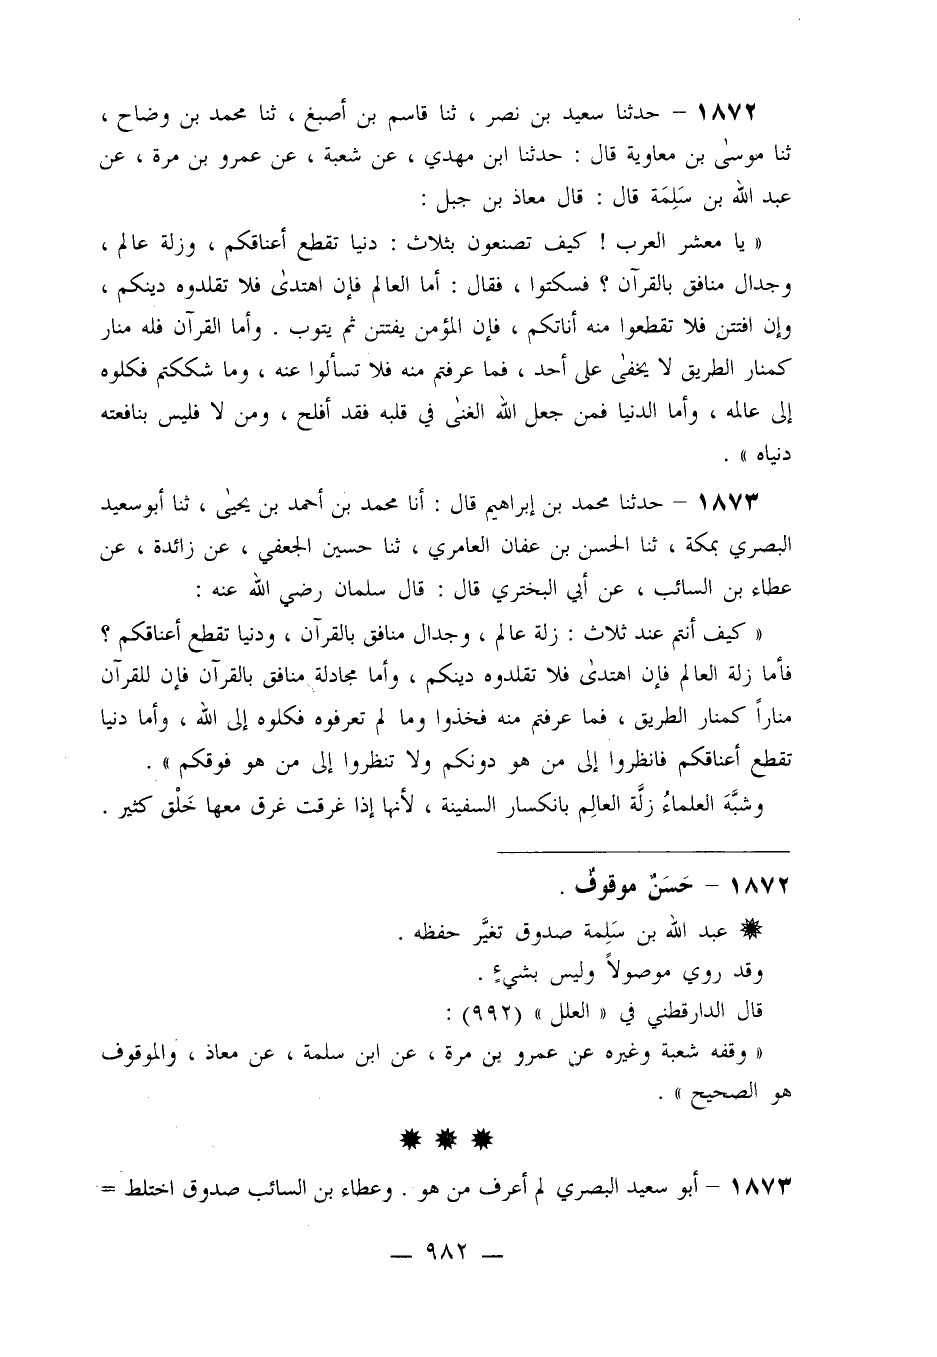 ١٨٧٢ – حدثنا سعيد بن نصر ، ثنا قاسم بن أصبغ ، ثنا محمد بن وضاح ،
ثنا موسىٰ بن معاوية قال : حدثنا ابن مهدي ، عن شعبة ، عن عمرو بن مرة ، عن
عبد الله بن سَلِمَة قال : قال معاذ بن جبل :
« يا معشر العرب ! كيف تصنعون بثلاث : دنيا تقطع أعناقكم ، وزلة عالم ،
وجدال منافق بالقرآن ؟ فسكتوا ، فقال : أما العالم فإن اهتدىٰ فلا تقلدوه دينكم ،
وإن افتتن فلا تقطعوا منه أناتكم ، فإن المؤمن يفتتن ثم يتوب . وأما القرآن فله منار
كمنار الطريق لا يخفىٰ على أحد ، فما عرفتم منه فلا تسألوا عنه ، وما شككتم فكلوه
إلى عالمه ، وأما الدنيا فمن جعل الله الغنىٰ في قلبه فقد أفلح ، ومن لا فليس بنافعته
دنياه » .
١٨٧٣ – حدثنا محمد بن إبراهيم قال : أنا محمد بن أحمد بن يحيىٰ ، ثنا أبو سعيد
البصري بمكة ، ثنا الحسن بن عفان العامري ، ثنا حسين الجعفي ، عن زائدة ، عن
عطاء بن السائب ، عن أبي البختري قال : قال سلمان رضي الله عنه :
« كيف أنتم عند ثلاث : زلة عالم ، وجدال منافق بالقرآن ، ودنيا تقطع أعناقكم ؟
فأما زلة العالم فإن اهتدىٰ فلا تقلدوه دينكم ، وأما مجادلة منافق بالقرآن فإن للقرآن
مناراً كمنار الطريق ، فما عرفتم منه فخذوا وما لم تعرفوه فكلوه إلى الله ، وأما دنيا
تقطع أعناقكم فانظروا إلى من هو دونكم ولا تنظروا إلى من هو فوقكم » .
وشبَّهَ العلماءُ زلَّة العالِم بانكسار السفينة ، لأنها إذا غرقت غرق معها خَلْق كثير .
١٨٧٢ – حَسَنٌ موقوفٌ .
✹ عبد الله بن سَلِمة صدوق تغيَّر حفظه .
وقد روي موصولاً وليس بشيءٍ .
قال الدارقطني في « العلل » (٩٩٢) :
« وقفه شعبة وغيره عن عمرو بن مرة ، عن ابن سلمة ، عن معاذ ، والموقوف
هو الصحيح » .
✹ ✹ ✹
١٨٧٣ – أبو سعيد البصري لم أعرف من هو . وعطاء بن السائب صدوق اختلط =
— ٩٨٢ —